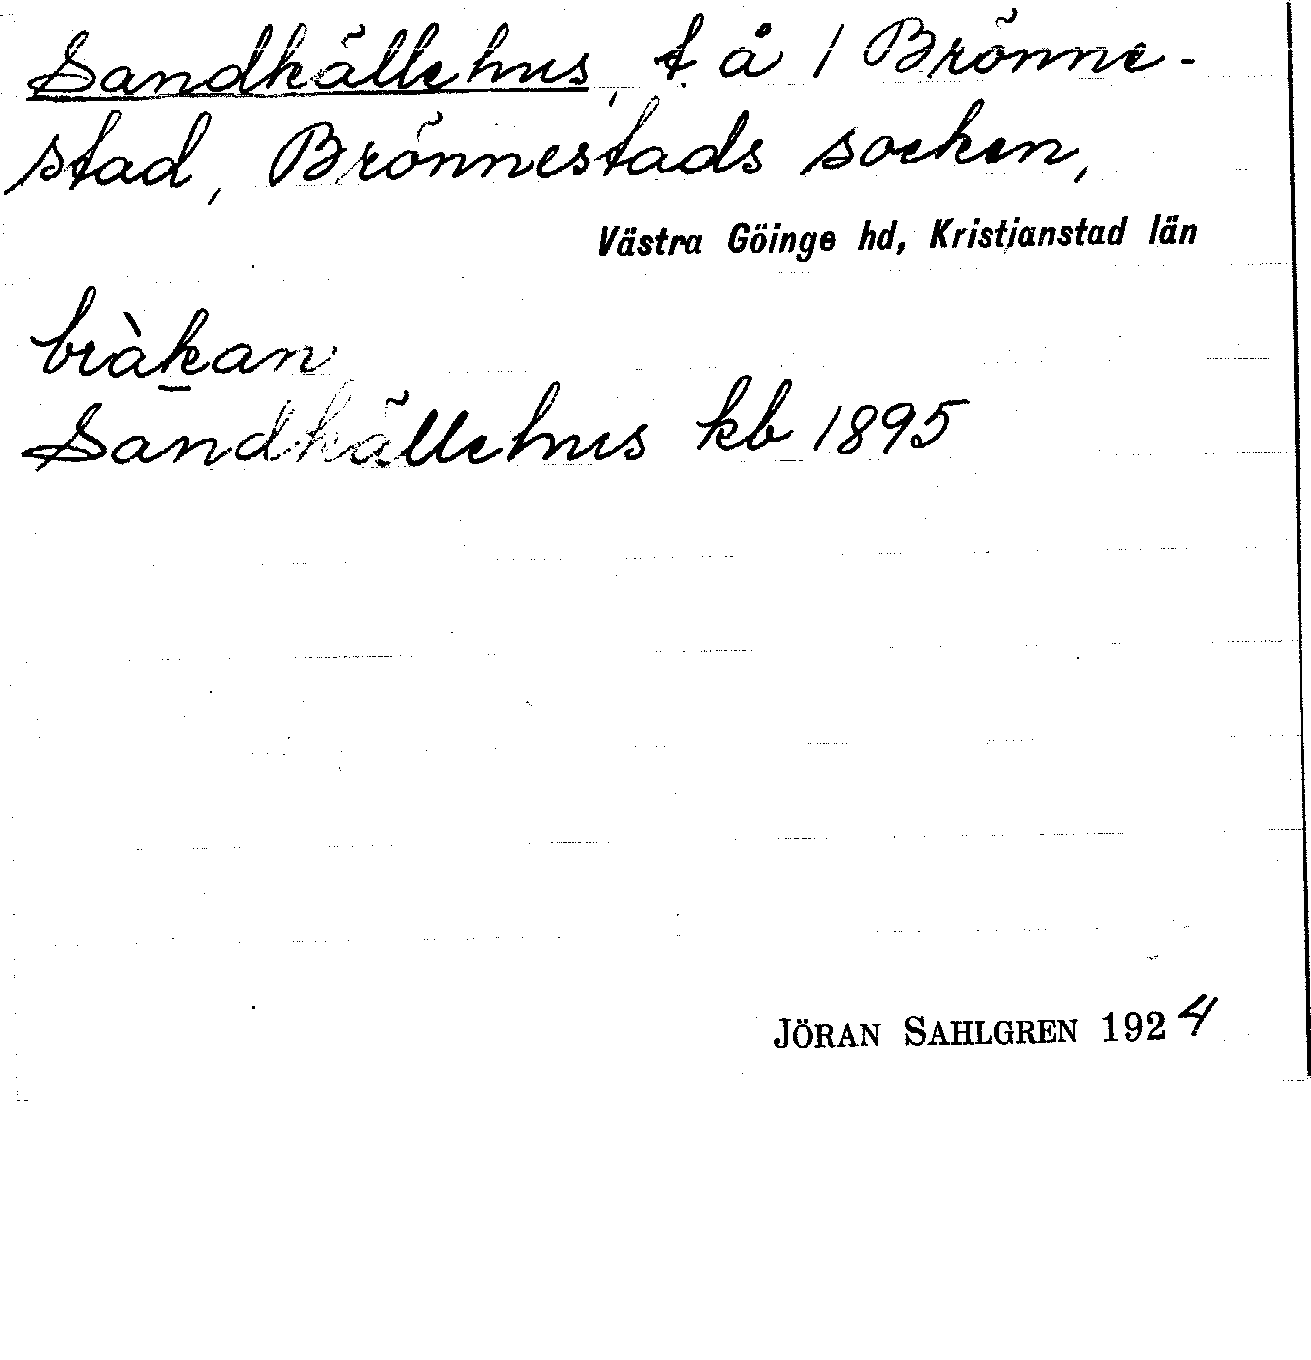 Sandkällehus, t å 1 Brönne-
stad, Brönnestads socken,
Västra Göinge hd, Kristianstad län
bràkan
Sandkällehus kb 1895
JÖRAN SAHLGREN 1924